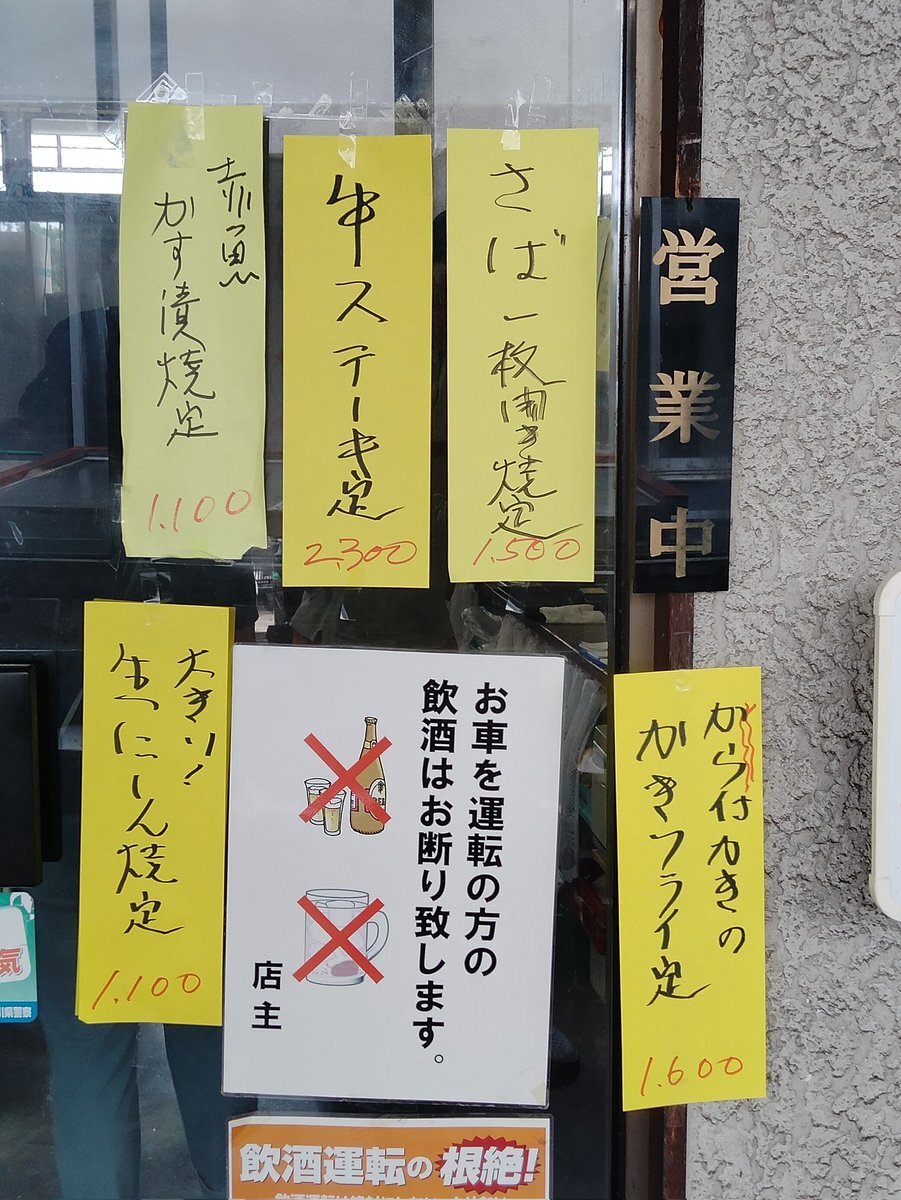 営業中
さば一枚開き焼定
1.500
牛ステーキ定
2.300
赤魚
かす漬焼定
1.100
から付かきの
かきフライ定
1.600
お車を運転の方の
飲酒はお断り致します。
店主
大きい!
生にしん焼定
1.100
飲酒運転の根絶!
気
川県警察